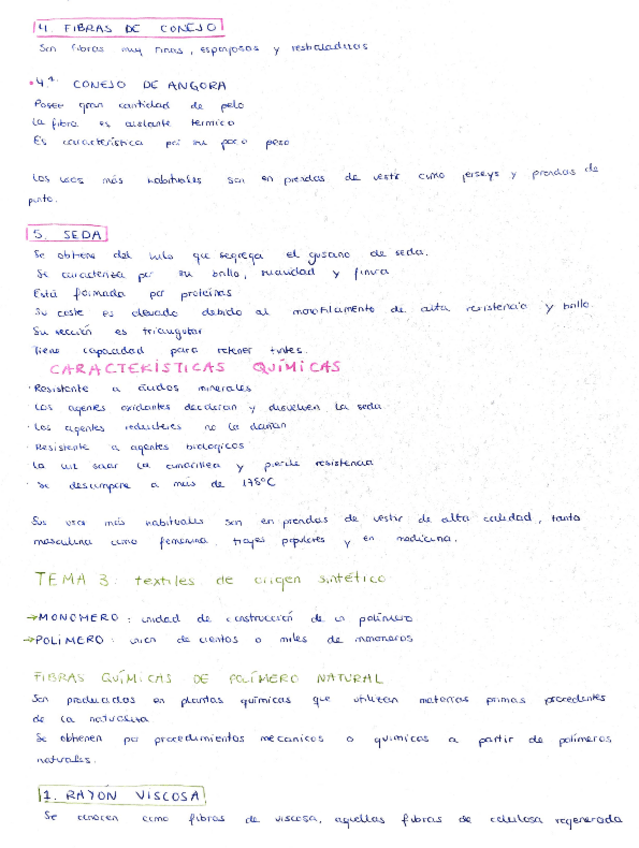 4. FIBRAS DE CONEJO
Son fibras muy finas, esponjosas y resbaladizas
4.1 CONEJO DE ANGORA
Posee gran cantidad de pelo
La fibra es aislante térmico
Es característica por su poco peso
Los usos más habituales son en prendas de vestir como jerseys y prendas de
punto.
5. SEDA
Se obtiene del hilo que segrega el gusano de seda.
Se caracteriza por su brillo, suavidad y finura
Está formada por proteínas
Su coste es elevado debido al monofilamento de alta resistencia y brillo.
Su sección es triangular
Tiene capacidad para retener tintes.
CARACTERÍSTICAS QUÍMICAS
· Resistente a ácidos minerales
Los agentes oxidantes decoloran y disuelven la seda
· Los agentes reductores no la dañan
· Resistente a agentes biológicos
La luz solar la amarillea y pierde resistencia
· Se descompone a más de 175ºC
Sus usos más habituales son en prendas de vestir de alta calidad, tanto
masculina como femenina, trajes populares y en medicina.
TEMA 3: textiles de origen sintético
→MONOMERO: unidad de construcción de un polímero
→POLIMERO: unión de cientos o miles de monomeros
FIBRAS QUÍMICAS DE POLÍMERO NATURAL
Son producidas en plantas químicas que utilizan materias primas procedentes
de la naturaleza
Se obtienen por procedimientos mecanicos o quimicos a partir de polímeros
naturales.
1. RAYON VISCOSA
Se conocen como fibras de viscosa, aquellas fibras de celulosa regenerada